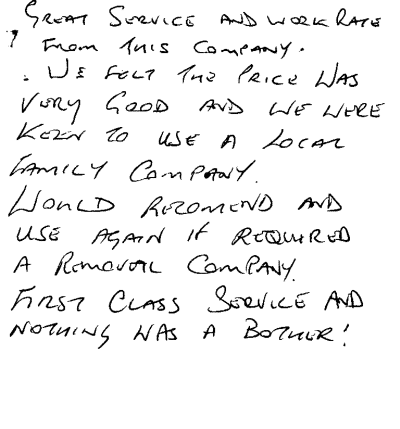 GREAT SERVICE AND WORK RATE
FROM THIS COMPANY.
. WE FELT THE PRICE WAS
VERY GOOD AND WE WERE
KEEN TO USE A LOCAL
FAMILY COMPANY.
WOULD RECOMEND AND
USE AGAIN IF REQUIRED
A REMOVAL COMPANY.
FIRST CLASS SERVICE AND
NOTHING WAS A BOTHER!